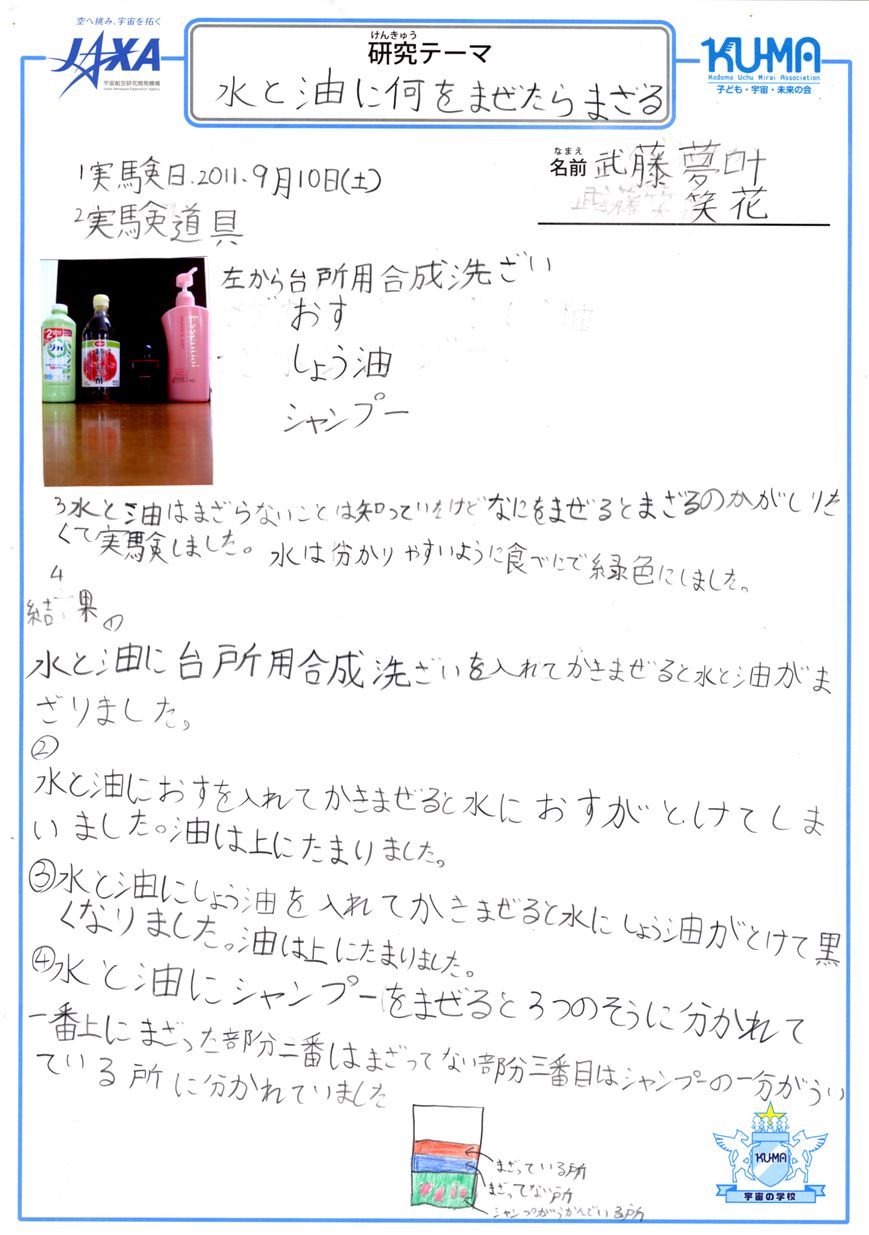 空へ挑み、宇宙を拓く
JAXA
宇宙航空研究開発機構
Japan Aerospace Exploration Agency
けんきゅう
研究テーマ
水と油に何をまぜたらまざる
KU-MA
Kodomo Uchu Mirai Association
子ども・宇宙・未来の会
なまえ
名前 武藤夢叶
笑花
1実験日.2011.9月10日(土)
2実験道具
左から台所用合成洗ざい
おす
しょう油
シャンプー
Essential
3水と油はまざらないことは知っていたけどなにをまぜるとまざるのかがしりた
くて実験しました。水は分かりやすいように食べにで緑色にしました。
4
結果①
水と油に台所用合成洗ざいを入れてかきまぜると水と油がま
ざりました。
②
水と油におすを入れてかきまぜると水におすがとけてしま
いました。油は上にたまりました。
③水と油にしょう油を入れてかきまぜると水にしょう油がとけて黒
くなりました。油は上にたまりました。
④水と油にシャンプーをまぜると3つのそうに分かれて
一番上にまざった部分二番はまざってない部分三番目はシャンプーの一分がうい
ている所に分かれていました
まざっている所
まざってない所
シャンプがうかんでいる所
KU-MA
宇宙の学校